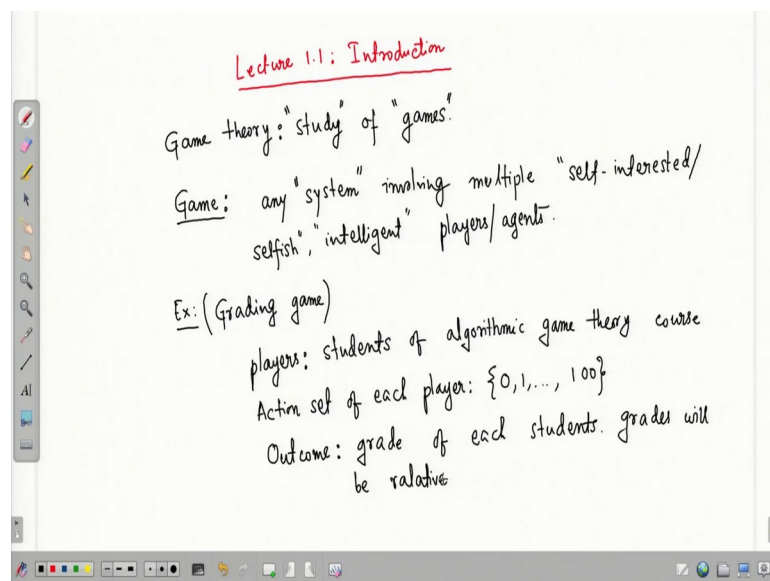 Lecture 1.1: Introduction
Game theory: "study" of "games".
Game: any "system" involving multiple "self-interested/
selfish", "intelligent" players/agents.
Ex: (Grading game)
players: students of algorithmic game theory course
Action set of each player: {0,1,..., 100}
Outcome: grade of each students. grades will
be ralative